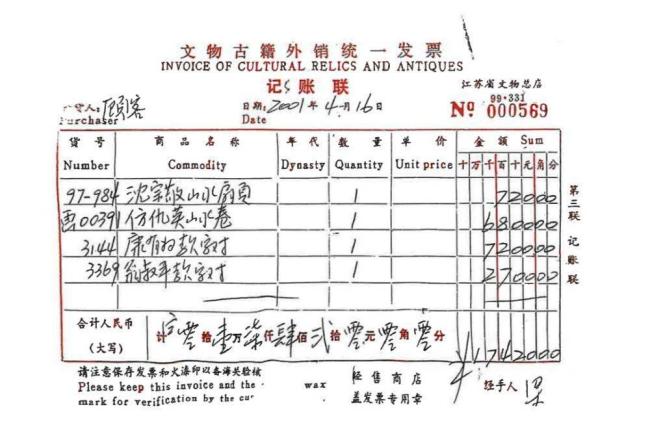 文物古籍外销统一发票
INVOICE OF CULTURAL RELICS AND ANTIQUES
记账联
江苏省文物总店
99·331
Purchaser 顾客
日期: 2001年4月16日
Date
№ 000569
货号 商品名称 年代 数量 单价 金额 Sum
Number Commodity Dynasty Quantity Unit price 十万千百十元角分
97-984 沈宗敬山水扇页 1 72000
00391 仿仇英山水卷 1 680000
3144 康有为款字对 1 720000
3369 翁叔平款字对 1 270000
第三联 记账联
合计人民币 (大写) 计 零拾壹万柒仟肆佰贰拾零元零角零分 ¥1742000
请注意保存发票和火漆印以备海关验核
Please keep this invoice and the wax
mark for verification by the cus
经售商店
盖发票专用章
经手人 梁